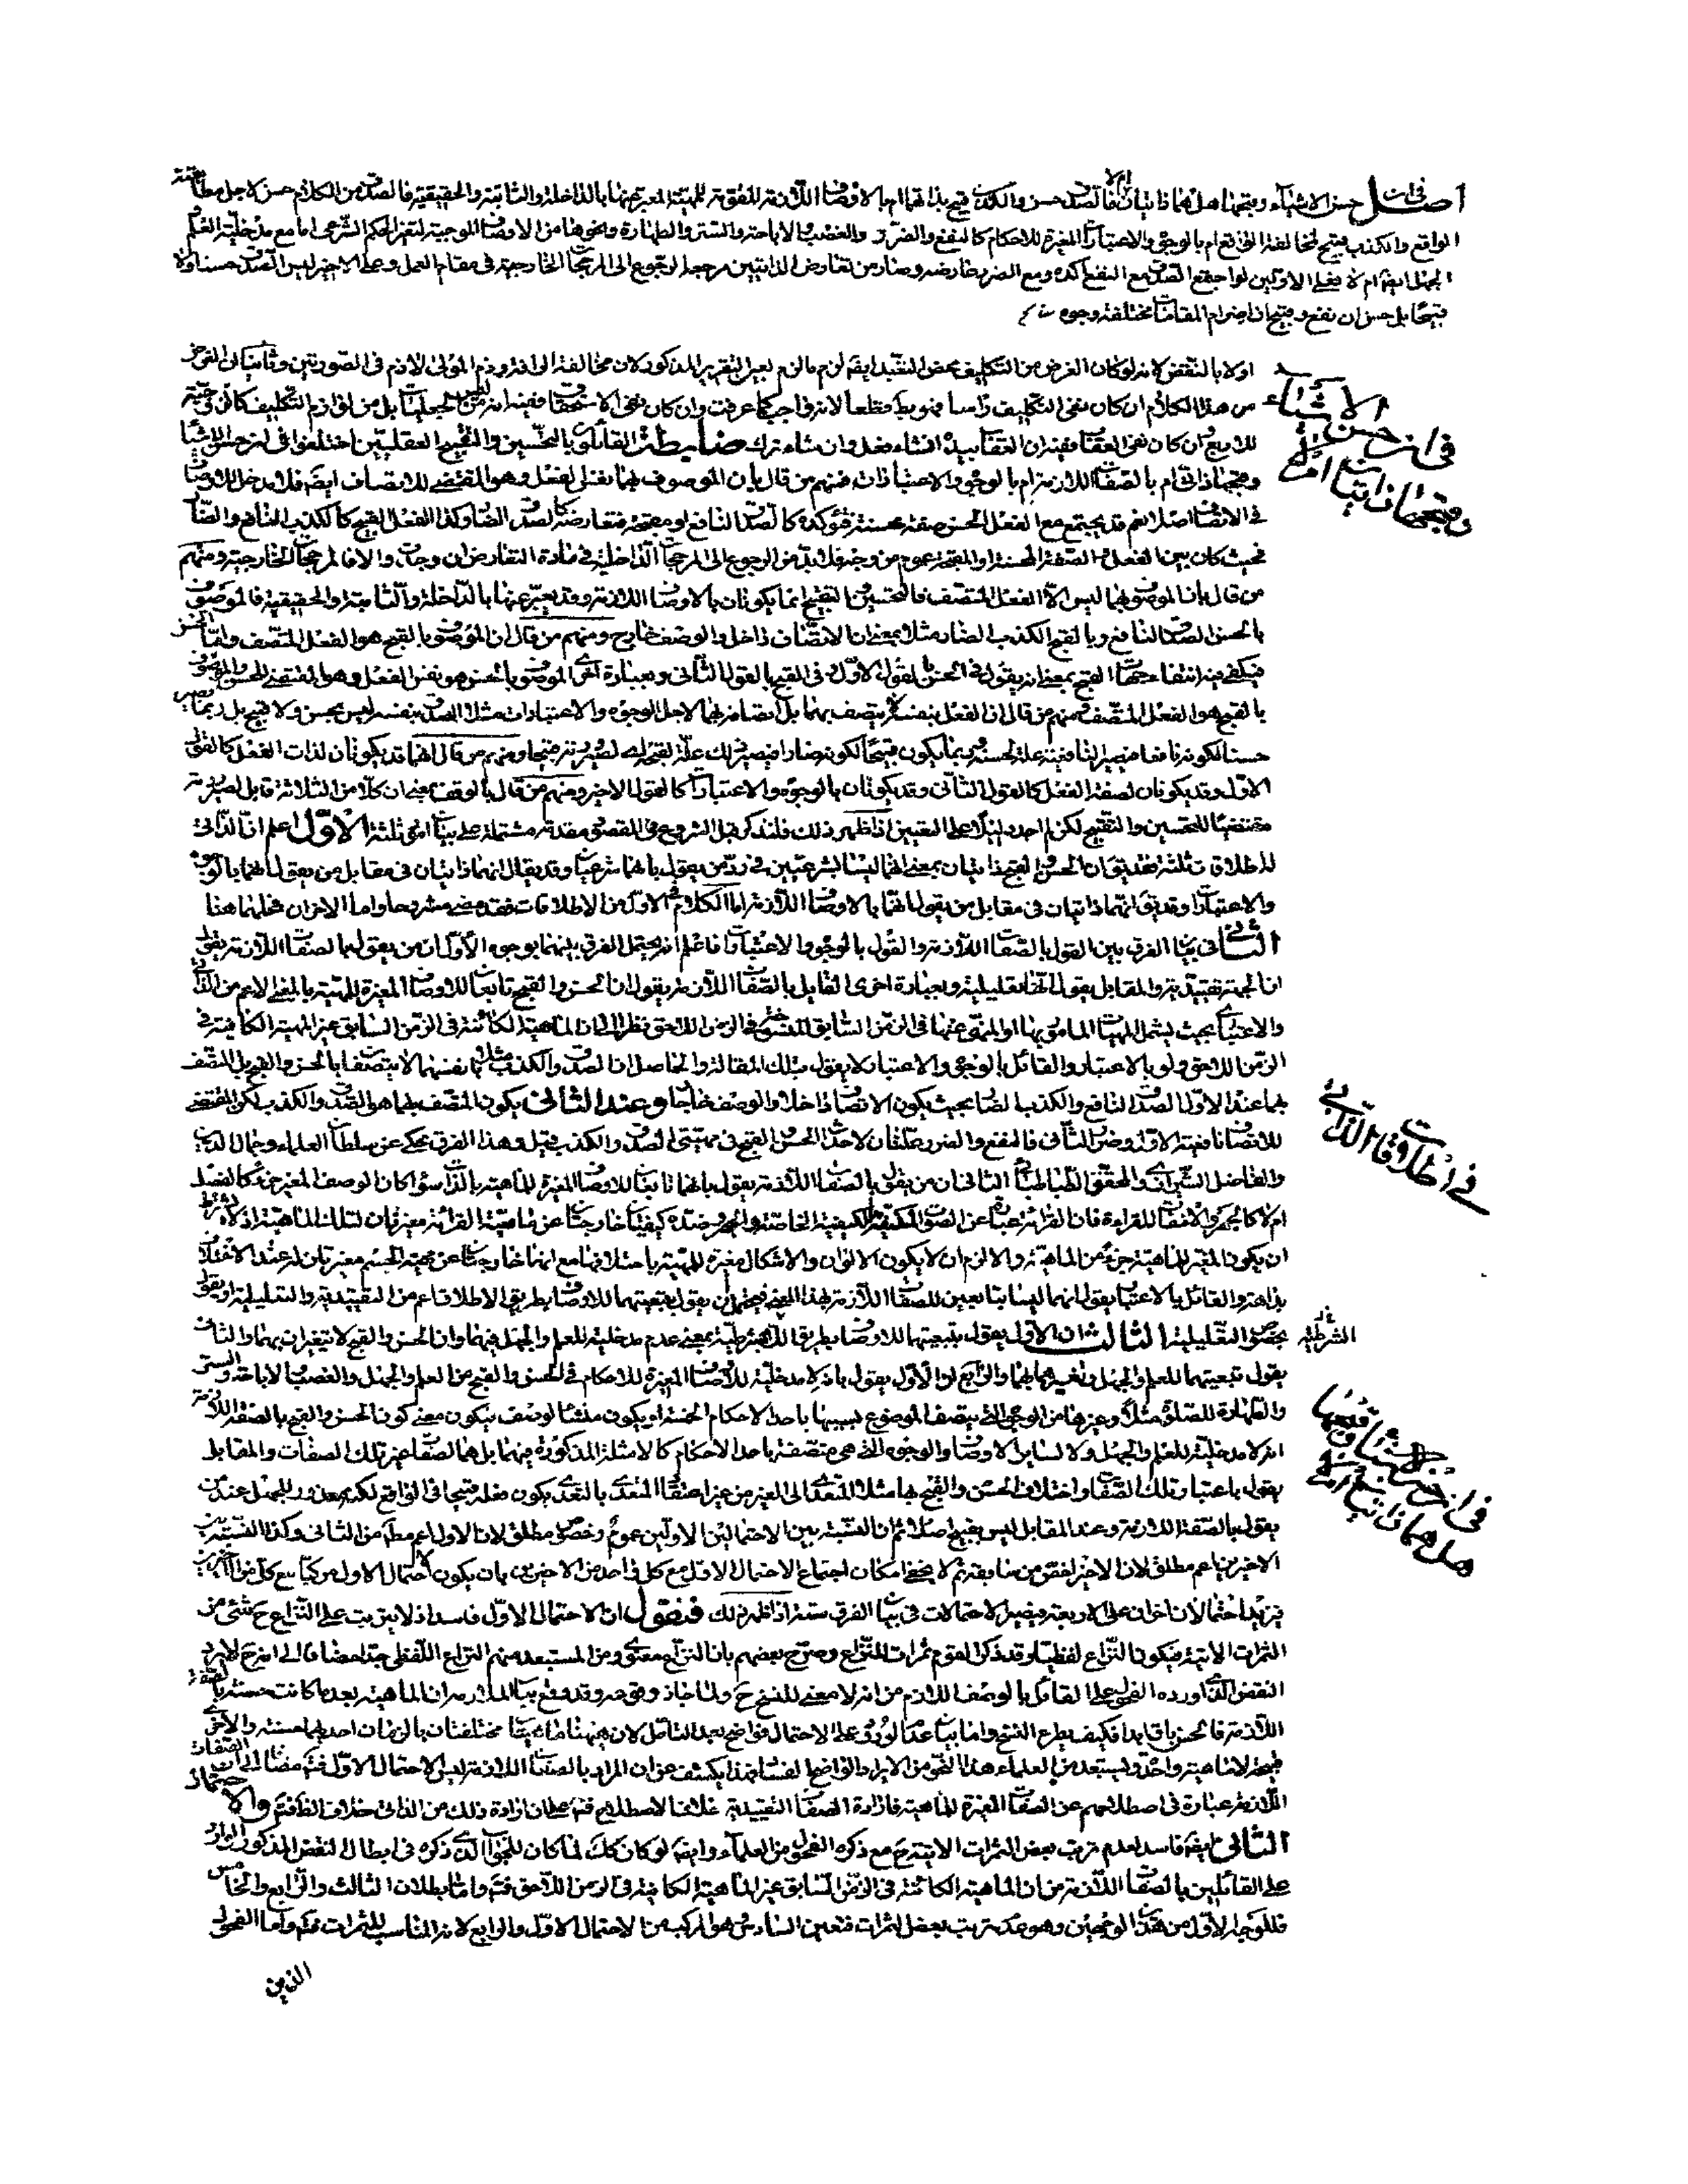 اصل في ان حسن الاشياء وقبحها هل هما ذاتيان ام لا فالصدق حسن والكذب قبيح بذاتهما ام بالاوصاف اللازمة للمهية المعبر عنها بالداخلة والثابتة والحقيقية فالصدق من الكلام حسن لاجل مطابقته
الواقع والكذب قبيح لمخالفة الواقع ام بالوجوه والاعتبارات المغيرة للاحكام كالنفع والضرر والغصب الاباحة والستر والطهارة ونحوها من الاوصاف الموجبة لتغير الحكم الشرعي اما مع مدخلية العلم
الجهل ايضا ام لا فعلى الاولين لو اجتمع الصدق مع النفع اكده ومع الضرر عارضه وصار من تعارض الذاتيين مرجعه الرجوع الى المرجحات الخارجية في مقام العمل وعلى الاخير ليس الصدق حسنا ولا
قبيحا بل حسن ان نفع وقبيح ان اضر ام المقامات مختلفة وجوه
اولا بالنقض لانه لو كان الغرض من التكليف محض التعبد ايضا لزم ما لزم بعين التقرير المذكور لان مخالفة الى اخره وذم المولى لازم في الصورتين وثانيا ان الغرض
من هذا الكلام ان كان نفي التكليف راسا فهو بط قطعا لانه واجب كما عرفت وان كان نفي الاستحقاق ففيه انه ليس بل من لوازم التكليف
وان كان نفي العقاب ففيه ان العقاب بيده انشاء فعل وان شاء ترك ضابطة القائلون بالتحسين والتقبيح العقليين اختلفوا في ان حسن الاشياء
وقبحها ذاتي ام بالصفات اللازمة ام بالوجوه والاعتبارات فمنهم من قال بان الموصوف بهما نفس الفعل وهو المقتضي للاتصاف ايضا فلا مدخل للاوصاف
في الاتصاف اصلا نعم قد يجتمع مع الفعل الحسن صفة محسنة فتؤكده كالصدق النافع او مقبحة فتعارضه كالصدق الضار وكذا الفعل القبيح كالكذب النافع والضار
فحيث كان بين الفعل والصفة المحسنة او المقبحة عموم من وجه فلا بد من الرجوع الى المرجحات الداخلية في مادة التعارض ان وجدت والا فالمرجحات الخارجية ومنهم
من قال بان الموصوف بهما ليس الا الفعل المتصف فالتحسين والتقبيح انما يكونان بالاوصاف اللازمة وقد يعبر عنها بالداخلة والثابتة والحقيقية فالموصوف
بالحسن الصدق النافع وبالقبح الكذب الضار مثلا بمعنى ان الاتصاف داخل والوصف خارج ومنهم من قال ان الموصوف بالقبح هو الفعل المتصف واما الحسن
فيكفي فيه انتفاء جهات القبح بمعنى انه يقول في الحسن بالقول الاول وفي القبح بالقول الثاني وبعبارة اخرى الموصوف بالحسن هو نفس الفعل وهو المقتضي للحسن والموصوف
بالقبح هو الفعل المتصف ومنهم من قال ان الفعل بنفسه لا يتصف بهما بل اتصافه بهما لاجل الوجوه والاعتبارات مثلا الصدق بنفسه ليس بحسن ولا قبيح بل ربما يصير
حسنا لكونه نافعا فيصير النافعية علة لحسنه وربما يكون قبيحا لكونه ضارا فيصير ذلك علة لقبحه ومنهم من قال انهما قد يكونان لذات الفعل كالقول
الاول وقد يكونان لصفة الفعل كالقول الثاني وقد يكونان بالوجوه والاعتبارات كالقول الاخير ومنهم من قال بالوقف بمعنى ان كلا من الثلاثة قابل لصيرورته
مقتضيا للتحسين والتقبيح لكن لم اجد دليلا على التعيين اذا ظهر ذلك فلنذكر قبل الشروع في المقصود مقدمة مشتملة على بيان امور ثلثة الاول اعلم ان الذاتي
له اطلاقات ثلثة فقد يق ان الحسن والقبح ذاتيان بمعنى انهما ليسا بشرعيين في رد من يقول بانهما شرعيان وقد يقال انهما ذاتيان في مقابل من يقول انهما بالوجوه
والاعتبارات وقد يق انهما ذاتيان في مقابل من يقول انهما بالاوصاف اللازمة اما الكلام في الاول من الاطلاقات فقد مضى مشروحا واما الاخران فمحلهما هنا
الثاني في بيان الفرق بين القول بالصفات اللازمة والقول بالوجوه والاعتبارات فاعلم انه يحتمل الفرق بينهما بوجوه الاول ان من يقول بالصفات اللازمة يقول
ان الجهة تقييدية والمقابل يقول انها تعليلية وبعبارة اخرى القايل بالصفات اللازمة يقول ان الحسن والقبح تابعان للاوصاف المغيرة للمهية بالمعنى الاعم من الذاتي
والاعتباري بحيث يشمل المهيات المامور بها او المنهي عنها في الزمن السابق المنسوخة في الزمن اللاحق نظرا الى ان الماهية الكائنة في الزمن السابق غير المهية الكائنة في
الزمن اللاحق ولو بالاعتبار والقائل بالوجوه والاعتبار لا يقول بتلك المقالة والحاصل ان الصدق والكذب مثلا بنفسهما لا يتصفان بالحسن والقبح بل المتصف
بهما عند الاول الصدق النافع والكذب الضار بحيث يكون الاتصاف داخلا والوصف خارجا وعند الثاني يكون المتصف بهما هو الصدق والكذب لكن المقتضي
للاتصاف نافعية الاول وضرر الثاني فالنفع والضرر علتان لاحداث الحسن والقبح في مهيتي الصدق والكذب قيل وهذا الفرق يحكى عن سلطان العلماء وجمال الدين
والفاضل الشيرواني والمحقق الطباطبائي الثاني ان من يقول بالصفات اللازمة يقول بانهما تابعان للاوصاف المغيرة للماهية بالذات سواء كان الوصف المغير جزء كالفصل
ام لا كالجهر والاخفات للقراءة فان القراءة عبارة عن الصوت المكيف بالكيفية الخاصة والجهر وضده كيفيتان خارجتان عن ماهية القرائة مغيرتان لتلك الماهية اذ لا يشترط
ان يكون المغير للماهية جزء من الماهية والا لزم ان لا يكون الالوان والاشكال مغيرة للمهية باختلافها مع انها خارجتان عن مهية الجسم مغيرتان له عند العقلاء
بداهة والقائل بالاعتبار يقول انهما ليسا بتابعين للصفات اللازمة بهذا المعنى فيحتمل ان يقول بتبعيتهما للاوصاف بطريق الاطلاق اعم من التقييدية والتعليلية او يقول
بخصوص التعليلية الثالث ان الاول يقول بتبعيتهما للاوصاف بطريق الشرطية بمعنى عدم مدخلية للعلم والجهل فيهما وان الحسن والقبح لا يتغيران بهما والثاني
يقول بتبعيتهما للعلم والجهل وتغيرهما بهما والرابع ان الاول يقول بانه لا مدخلية للاوصاف المغيرة للاحكام في الحسن والقبح من العلم والجهل والغصب والاباحة والستر
والطهارة للصلوة مثلا وغيرها من الوجوه التي يتصف الموضوع بسببها باحد الاحكام الخمسة او يكون منشأ لوصف فيكون معنى كون الحسن والقبح بالصفة اللازمة
انه لا مدخلية للعلم والجهل ولا لساير الاوصاف والوجوه التي هي متصفة باحد الاحكام كالامثلة المذكورة فيهما بل هما لصفات غير تلك الصفات والمقابل
يقول باعتبار تلك الصفات واختلاف الحسن والقبح بها مثلا التعدي الى الغير من غير اعتقاد المتعدي بالتعدي يكون فعله قبيحا في الواقع لكنه معذور للجهل عند من
يقول بالصفة اللازمة وعند المقابل ليس بقبيح اصلا ثم ان النسبة بين الاحتمالين الاولين عموم وخصوص مطلق لان الاول اعم مط من الثاني وكذا النسبة بين
الاخيرين اعم مطلق لان الاخير اخص من سابقه ثم لا يخفى امكان اجتماع الاحتمال الاول مع كل واحد من الاخيرين بان يكون الاحتمال الاول مركبا مع كل من الاخيرين
فيزيد احتمالان اخران على الاربعة فيصير الاحتمالات في بيان الفرق ستة اذا ظهر ذلك فنقول ان الاحتمال الاول فاسد اذ لا يترتب على النزاع ح شئ من
الثمرات الاتية فيكون النزاع لفظيا وقد ذكر القوم ثمرات للنزاع وصرح بعضهم بان النزاع معنوي ومن المستبعد منهم النزاع اللفظي جدا مضافا الى انه ح لا يرد
النقض الذي اورده الفحول على القائل بالوصف اللازم من انه لا معنى للنسخ ح ولما جاز وقوعه وقد وقع بيان الملازمة ان الماهية بعد ما كانت حسنة بالصفة
اللازمة فالحسن باق ابدا فكيف يطرء النسخ واما بيان عدم الورود على الاحتمال فواضح بعد التامل لان هيهنا ماهيتان مختلفتان بالزمان احديهما حسنة والاخرى
قبيحة لا ماهية واحدة ويستبعد من العلماء هذا النحو من الايراد الواضح الفساد فهذا يكشف عن ان المراد بالصفات اللازمة ليس الاحتمال الاول فتم مضافا الى ان الصفات
اللازمة عبارة في اصطلاحهم عن الصفات المغيرة للماهية فارادة الصفات التقييدية خلاف الاصطلاح فتم على ان ارادة ذلك من الذاتي خلاف الظ فتم والاحتمال
الثاني ايضا فاسد لعدم ترتب بعض الثمرات الاتية ح مع ذكره الفحول من العلماء وايضا لو كان كك لما كان للجواب الذي ذكره في ابطال النقض المذكور الوارد
على القائلين بالصفات اللازمة من ان الماهية الكائنة في الزمن السابق غير الماهية الكائنة في الزمن اللاحق فتم واما بطلان الثالث والرابع والخامس
فللوجه الاول من هذين الوجهين وهو عدم ترتب بعض الثمرات فتعين السادس وهو المركب من الاحتمال الاول والرابع لانه المناسب للثمرات فتم واما الفحول
الذين
في ان حسن الاشياء
وقبحها ذاتيان ام لا
في اطلاقات الذاتي
الشرطية
في ان حسن الاشياء وقبحها
هل هما ذاتيان ام لا